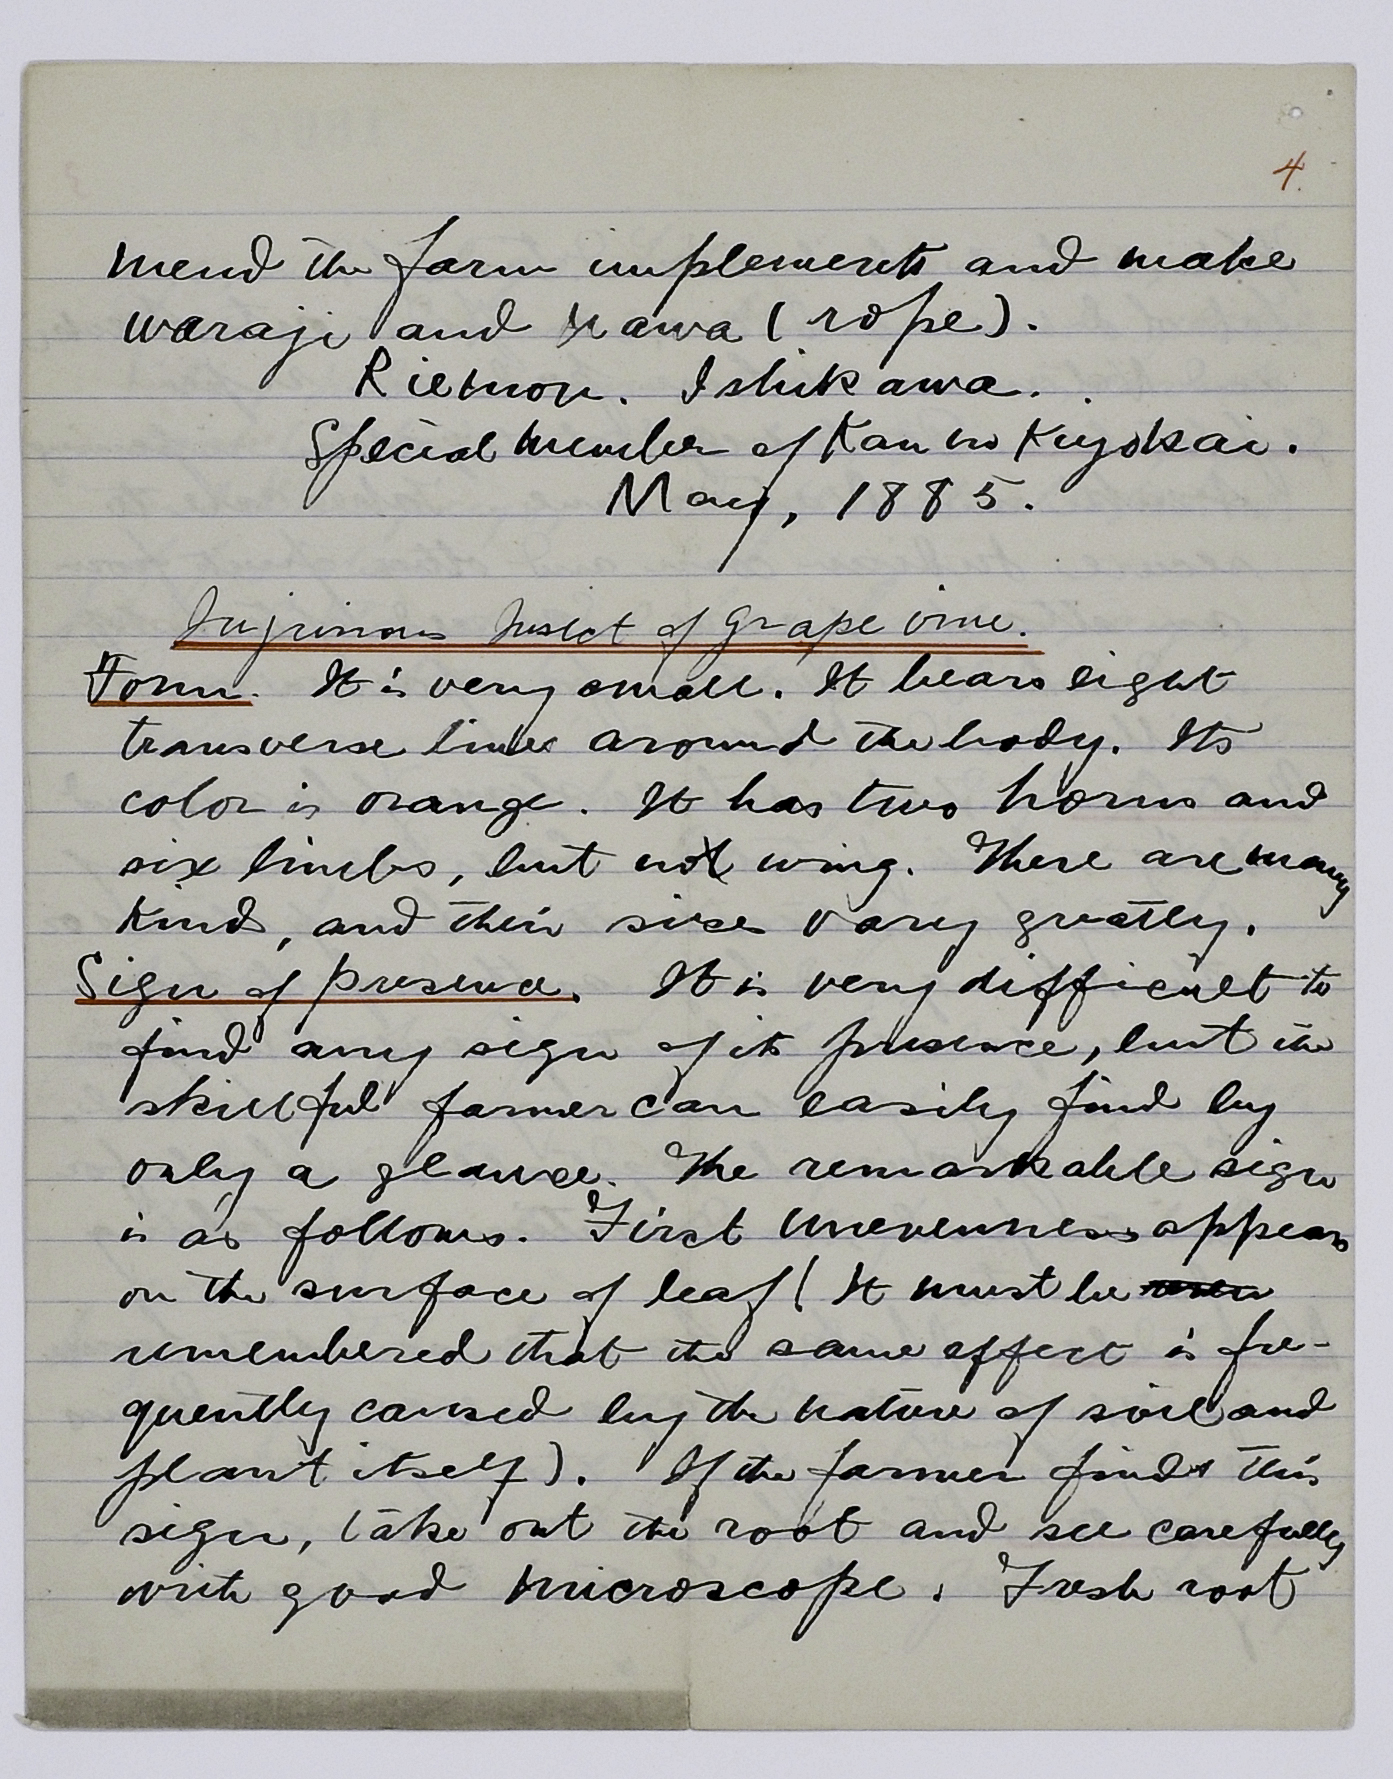 4.
mend the farm implements and make
waraji and nawa (rope).
Riemon. Ishikawa.
Special member of Kan no Kiyokai.
May, 1885.
Injurious Insect of Grape vine.
Form. It is very small. It bears eight
transverse lines around the body. Its
color is orange. It has two horns and
six limbs, but not wing. There are many
kind, and their sizes vary greatly.
Sign of presence. It is very difficult to
find any sign of its presence, but the
skillful farmer can easily find by
only a glance. The remarkable sign
is as follows. First unevenness appears
on the surface of leaf (It must be
remembered that the same effect is fre-
quently caused by the nature of soil and
plant itself). If the farmer finds this
sign, take out the root and see carefully
with good microscope. Fresh root